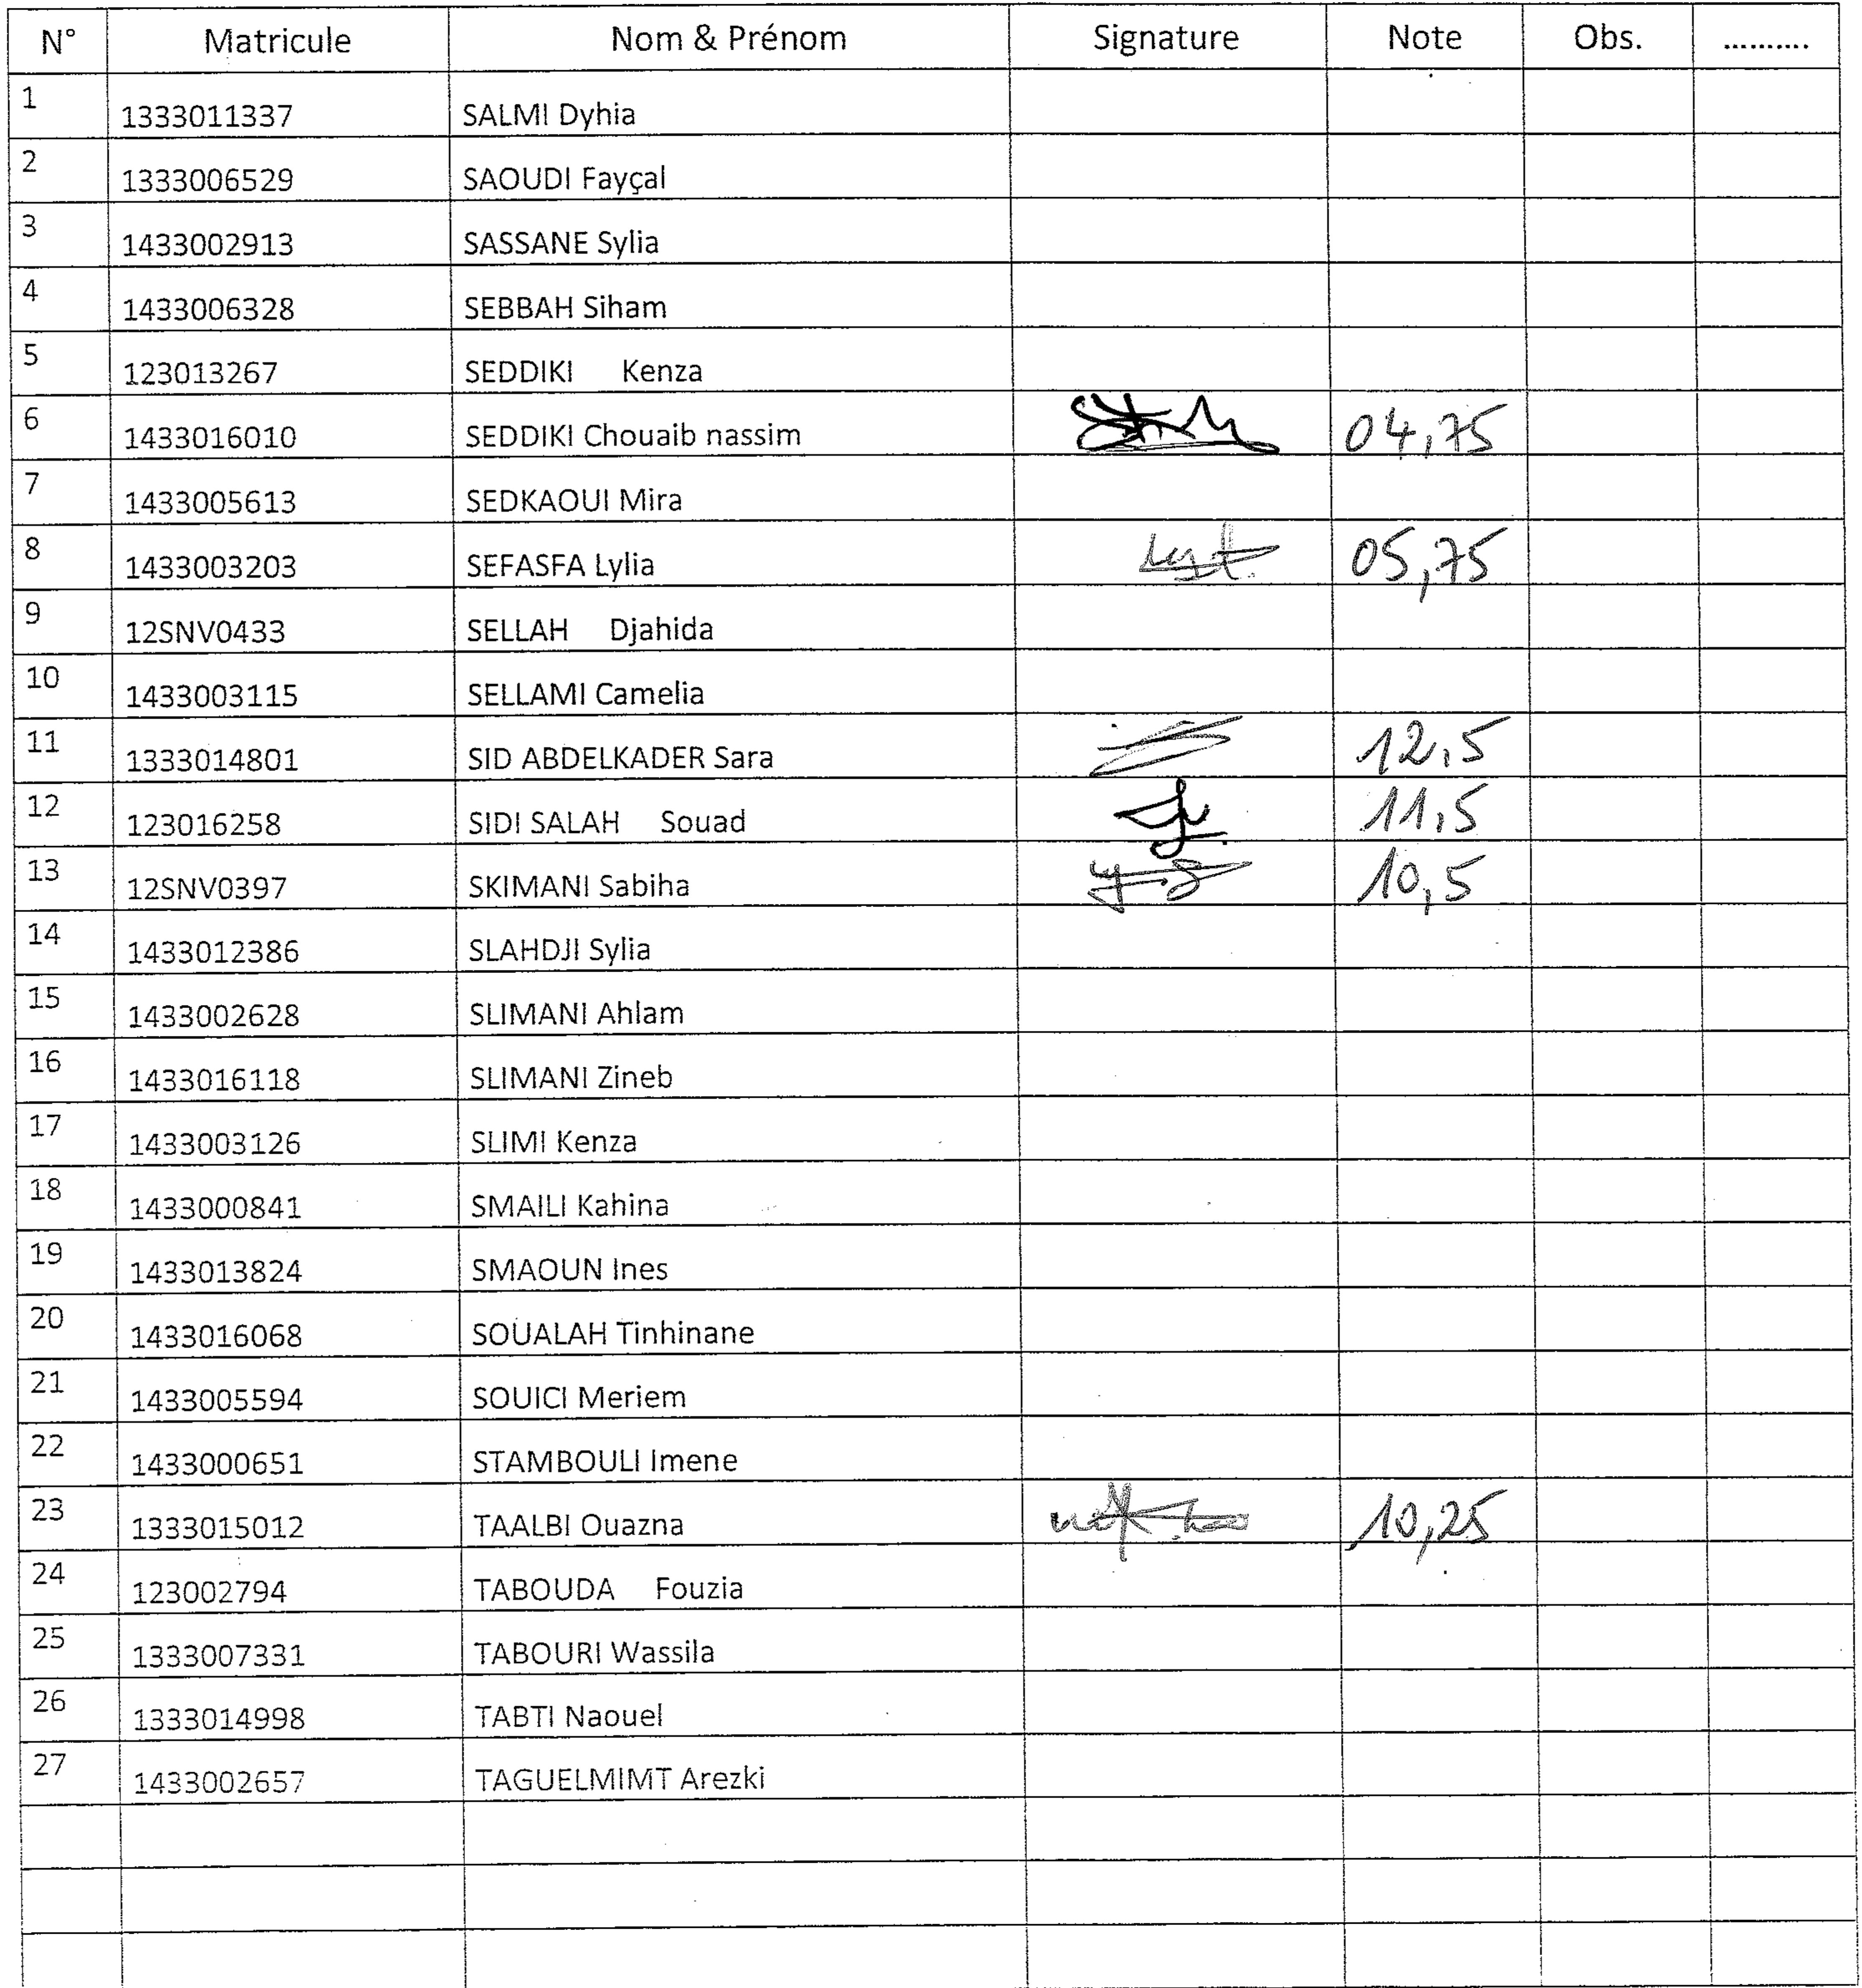 N° Matricule Nom & Prénom Signature Note Obs. ..........
1 1333011337 SALMI Dyhia
2 1333006529 SAOUDI Fayçal
3 1433002913 SASSANE Sylia
4 1433006328 SEBBAH Siham
5 123013267 SEDDIKI Kenza
6 1433016010 SEDDIKI Chouaib nassim 04,75
7 1433005613 SEDKAOUI Mira
8 1433003203 SEFASFA Lylia 05,75
9 12SNV0433 SELLAH Djahida
10 1433003115 SELLAMI Camelia
11 1333014801 SID ABDELKADER Sara 12,5
12 123016258 SIDI SALAH Souad 11,5
13 12SNV0397 SKIMANI Sabiha 10,5
14 1433012386 SLAHDJI Sylia
15 1433002628 SLIMANI Ahlam
16 1433016118 SLIMANI Zineb
17 1433003126 SLIMI Kenza
18 1433000841 SMAILI Kahina
19 1433013824 SMAOUN Ines
20 1433016068 SOUALAH Tinhinane
21 1433005594 SOUICI Meriem
22 1433000651 STAMBOULI Imene
23 1333015012 TAALBI Ouazna 10,25
24 123002794 TABOUDA Fouzia
25 1333007331 TABOURI Wassila
26 1333014998 TABTI Naouel
27 1433002657 TAGUELMIMT Arezki